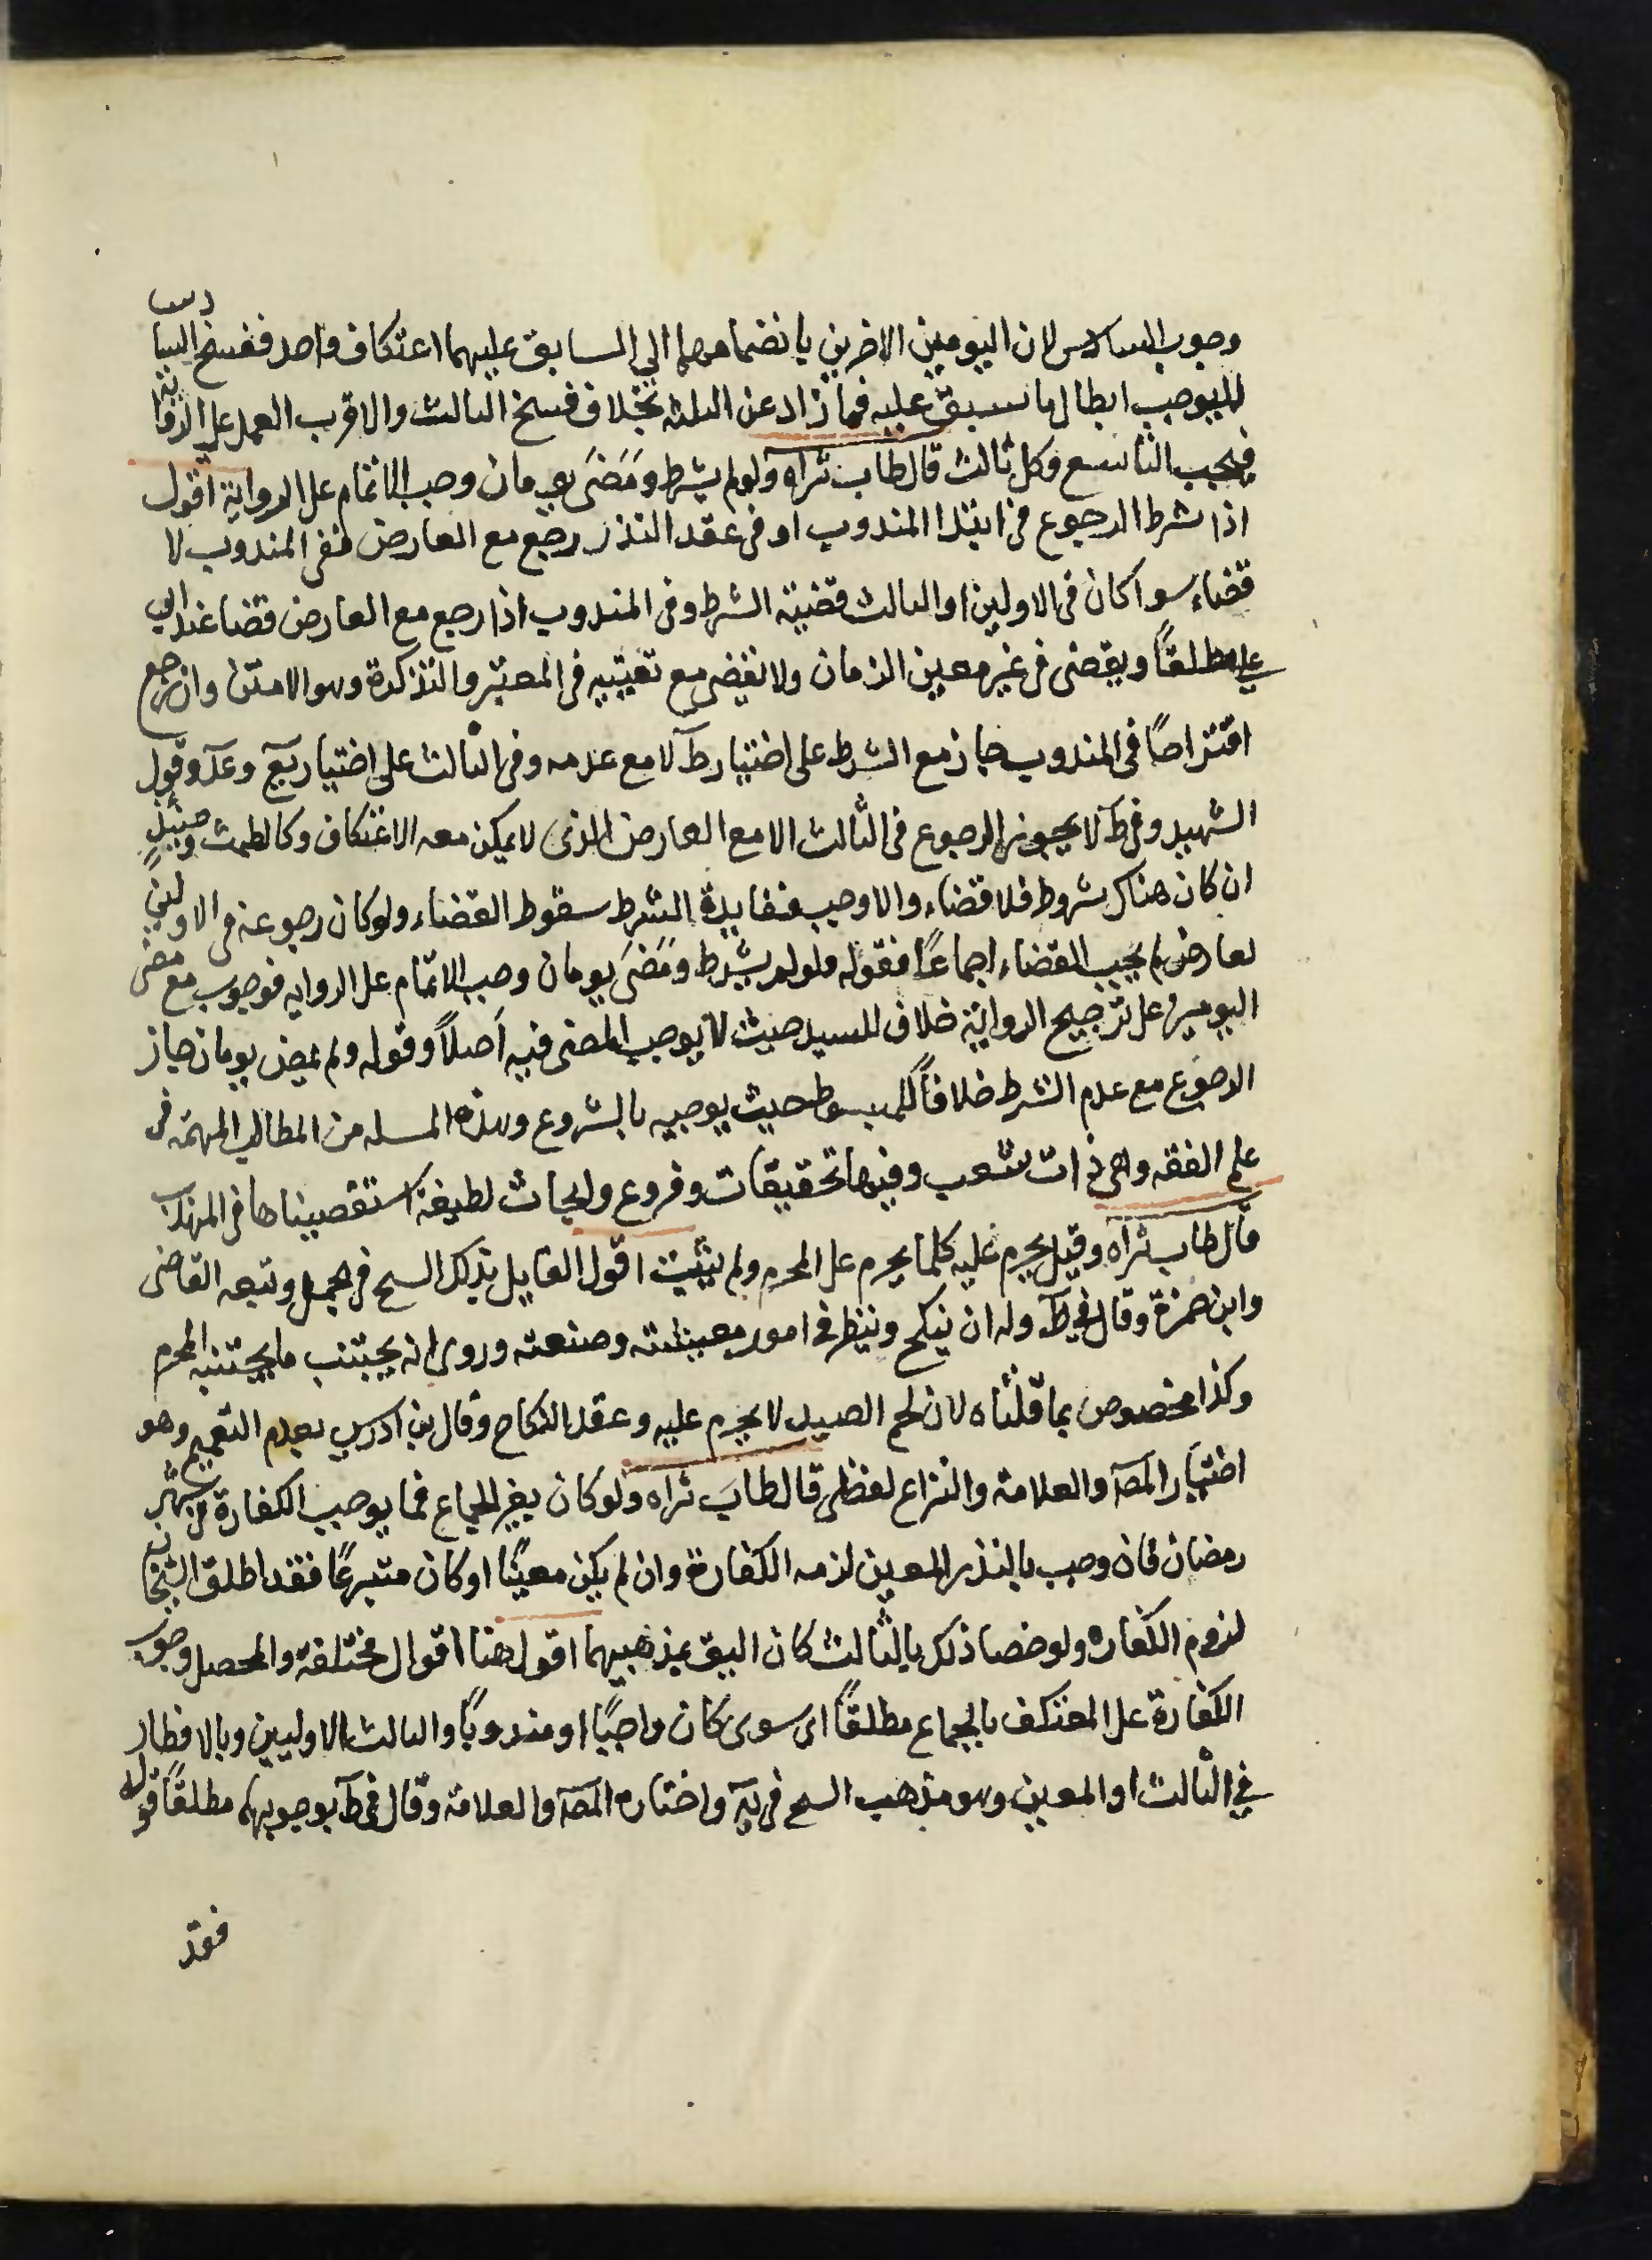 وجوب السادس لان اليومين الاخرين بانضمامهما الى السابق عليهما اعتكاف واحد ففسخ السادس
لا يوجب ابطال ما سبق عليه فما زاد عن الثلثه بخلاف فسخ الثالث والاقرب العمل على الرواية
فيجب التاسع وكل ثالث قال طاب ثراه ولو لم يشرط ومَضىَ يومان وجب الاتمام على الرواية اقول
اذا شرط الرجوع في ابتدا المندوب او في عقد النذر رجع مع العارض ففى المندوب لا
قضاء سوا كان فى الاولين او الثالث قضية الشرط وفى المندوب اذا رجع مع العارض قضا عند ابي
علي مطلقًا ويقضى فى غير معين الزمان ولا يقضى مع تعيينه فى المعتبر والتذكرة وهو الامتن وان رجع
اقتراحًا فى المندوب جاز مع الشرط على اختيار طآ لا مع عدمه وفى الثالث على اختيار يع وعلآ وقول
الشهيد وفى طآ لا يجوز الرجوع فى الثالث الا مع العارض الذى لا يمكن معه الاعتكاف وكالطمث وحينئذٍ
ان كان هناك شروط فلا قضاء والا وجب ففايدة الشرط سقوط القضاء ولو كان رجوعه فى الاولين
لعارض لم يجب القضاء اجماعًا فقوله ولو لم يشرط ومَضىَ يومان وجب الاتمام على الروايه فوجوب مع مضى
اليومين على ترجيح الرواية خلاف للسيد حيث لا يوجب المضى فيه اَصلاً وقوله ولم يمض يومان جاز
الرجوع مع عدم الشرط خلافاً للمبسوط حيث يوجبه بالشروع وهذه المسله من المطالب المهمه فى
علم الفقه وهى ذات شعب وفيها تحقيقات وفروع وابحاث لطيفة استقصيناها فى المهذب
قال طاب ثراه وقيل يحرم عليه كلما يحرم على المحرم ولم يثبت اقول القايل بذلك السح فى الجمل وتبعه القاضى
وابن حمزة وقال فى طآ وله ان ينكح وينظر فى امور معيشته وصنعته وروى انه يجتنب ما يجتنبه المحرم
وكذا مخصوص بما قلناه لان لحم الصيد لا يحرم عليه وعقد النكاح وقال بن ادريس بعدم التعميم وهو
اختيار المصآ والعلامة والنزاع لفظى قال طابَ ثراه ولو كان بغير الجماع فما يوجب الكفارة فى شهر
رمضان فان وجب بالنذر المعين لزمه الكفارة وان لم يكن معينًا او كان متبرعًا فقد اطلق الشيخان
لزوم الكفاره ولو خصا ذلك بالثالث كان اليق بمذهبيهما اقول هنا اقوال مختلفة والمحصل وجوب
الكفارة على المعتكف بالجماع مطلقًا اى سوى كان واجبًا او مندوبًا والثالث والاوليين وبالافطار
في الثالث او المعين وهو مذهب السح فى يآ واختاره المصآ والعلامة وقال فى طآ بوجوبها مطلقًا قوله
فقد